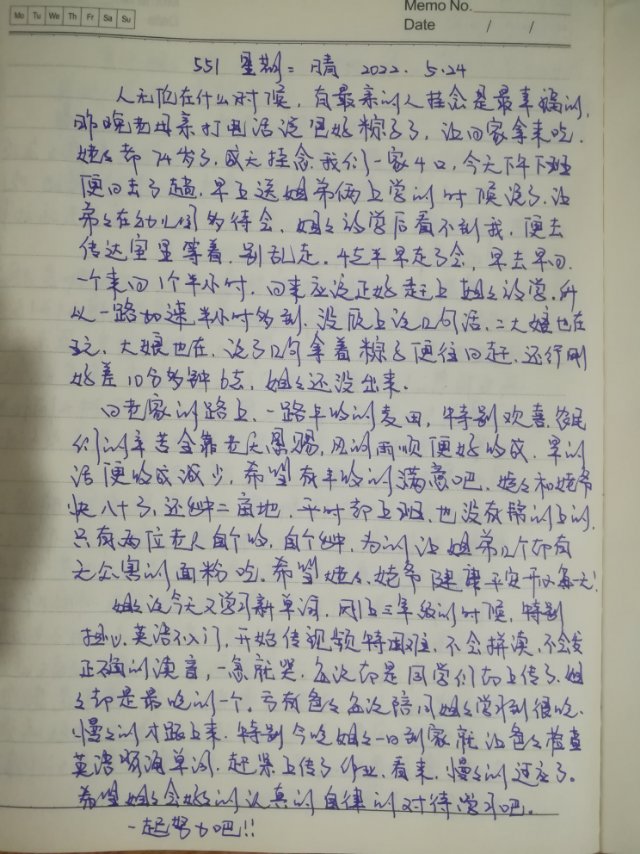 Mo Tu We Th Fr Sa Su
Memo No.
Date / /
551 星期二 晴 2022. 5.24
人无论在什么时候，有最亲的人挂念是最幸福的，
昨晚老母亲打电话说包好粽子了，让回家拿来吃，
姥姥都74岁了，成天挂念我们一家4口，今天下午下班
便回去了趟，早上送姐弟俩上学的时候说了，让
弟弟在幼儿园多待会，姐姐放学后看不到我，便去
传达室里等着，别乱走。4点半早走了会，早去早回，
一个来回1个半小时，回来应该正好赶上姐姐放学，所
以一路加速半小时多到，没顾上说几句话，二大娘也在
玩，大娘也在，说了几句拿着粽子便往回赶，还行刚
好差10分多钟6点，姐姐还没出来。
回老家的路上，一路丰收的麦田，特别欢喜，农民
们的辛苦全靠老天恩赐，风调雨顺便好收成，旱的
话便收成减少，希望有丰收的满意吧，姥姥和姥爷
快八十了，还种二亩地，平时都上班，也没有帮的上的，
只有两位老人自个收，自个种，为的让姐弟几个都有
无公害的面粉吃。希望姥姥、姥爷健康平安开心每一天！
姐姐说今天又学习新单词，刚上三年级的时候，特别
担心，英语不入门，开始传视频特困难，不会拼读，不会发
正确的读音，一急就哭，每次都是同学们都上传了，姐
姐却是最晚的一个。亏有爸爸每次陪同姐姐学习到很晚，
慢慢的才跟上来，特别今晚姐姐一回到家就让爸爸检查
英语听写单词，起来上传了作业，看来，慢慢的适应了。
希望姐姐会好好的认真的自律的对待学习吧。
一起努力吧!!